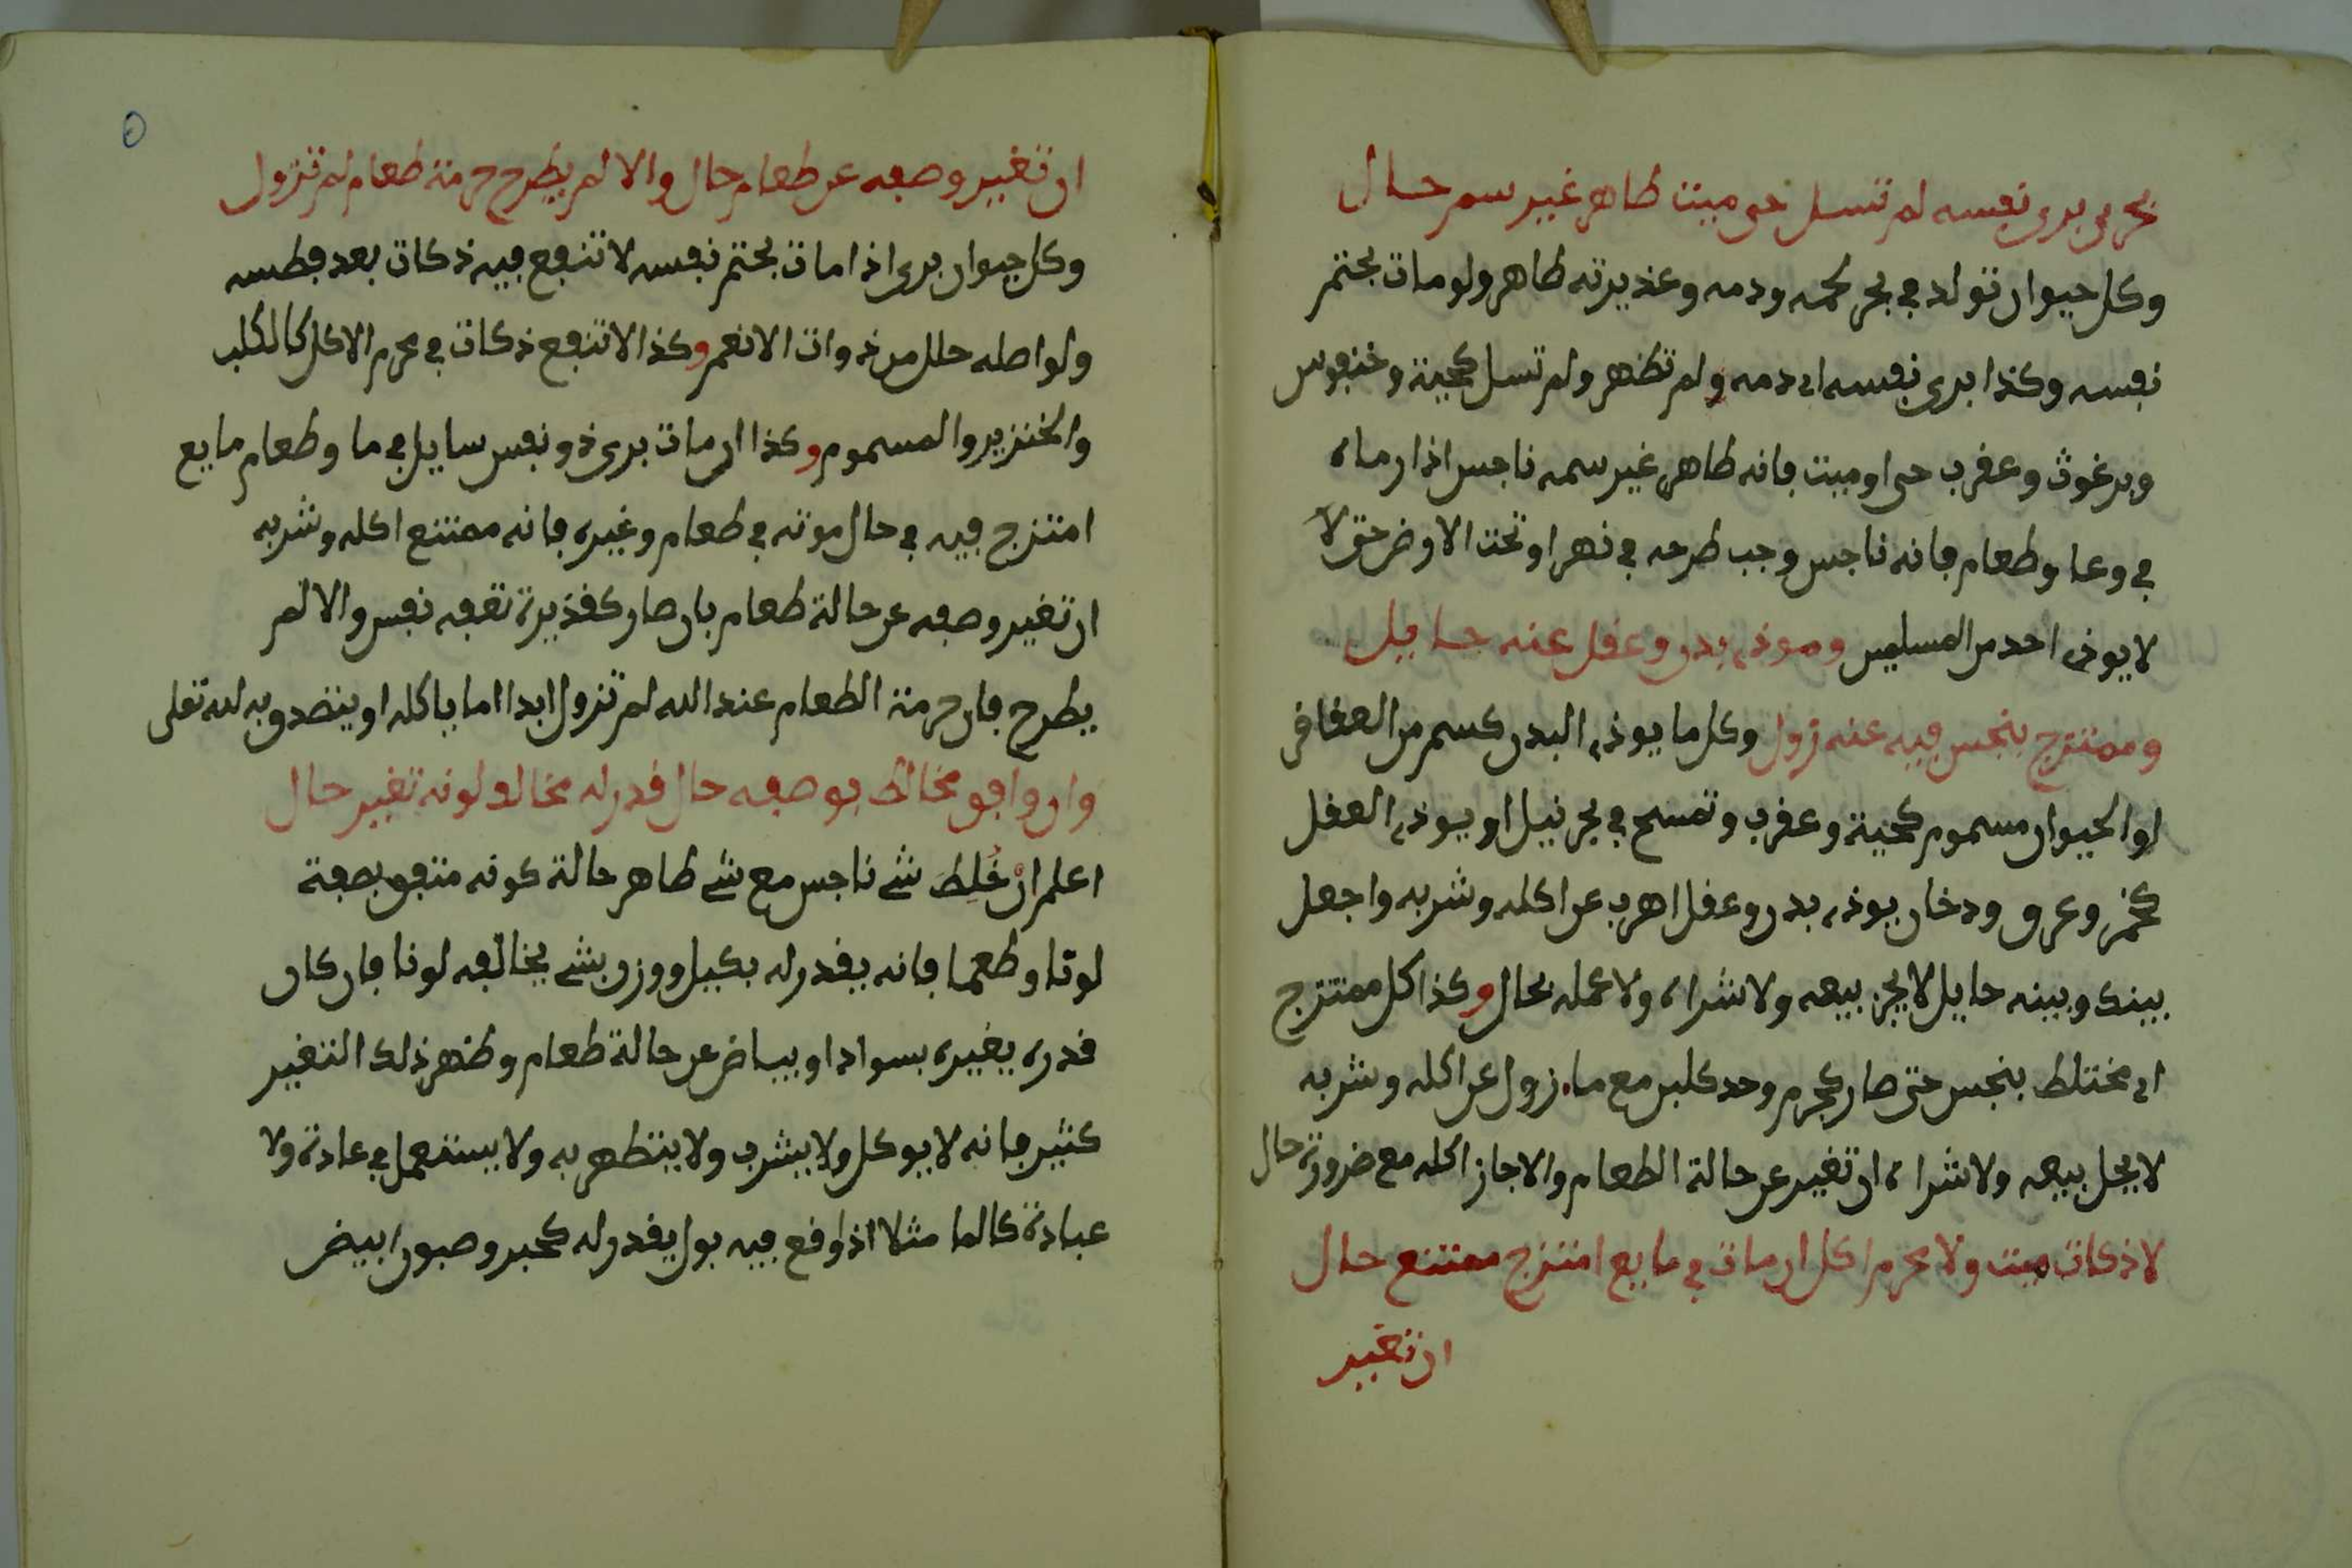 بحري بري نفسه لم تسل حي ميت طاهر غير سم حال
وكل حيوان تولد في بحر لحمه ودمه وعذيرته طاهر ولو مات بحتم
نفسه وكذا بري نفسه اي دمه ولم تظهر ولم تسل كحية وخنفوس
وبرغوث وعقرب حي او ميت فانه طاهر غير سمه ناجس اذا رماه
في وعا وطعام فانه ناجس وجب طرحه في نهر او تحت الاوض حتى لا
لا يوذي احد من المسلمين وموذي بدن وعقل عنه حايل
وممتزج بنجس فيه عنه زول وكل ما يوذي البدن كسم من العقاقر
او الحيوان مسموم كحية وعقرب وتمسح في بحر نيل او يوذي العقل
كخمر وعرق ودخان يوذي بدن وعقل اهرب عن اكله وشربه واجعل
بينك وبينه حايل لا يجز بيعه ولا شراه ولا عمله بحال وكذا كل ممتزج
اي مختلط بنجس حتى صار كجرم وحد كلبن مع ما زول عن اكله وشربه
لا يحل بيعه ولا شراه ان تغير عن حالة الطعام والا جاز اكله مع ضرورة حال
لا ذكات ميت ولا محرم اكل ان مات في مايع امتزج ممتنع حال
ان تغير
ان تغير وصفه عن طعام حال والا لم يطرح حرمة طعام لم تزول
وكل حيوان بري اذا مات بحتم نفسه لا تنفع فيه ذكات بعد فطسه
ولو اصله حلل من ذوات الانعم وكذا لا تنفع ذكات في محرم الاكل كالكلب
والخنزير والمسموم وكذا ان مات بري ذو نفس سايل في ما وطعام مايع
امتزج فيه في حال موته في طعام وغيره فانه ممتنع اكله وشربه
ان تغير وصفه عن حالة طعام بان صار كقذيرة تقفه نفس والا لم
يطرح فان حرمة الطعام عند الله لم تزول ابدا اما ياكله او يتصدق به لله تعلى
وان وافق مخالط بوصفه حال قدر له مخالف لونه تغير حال
اعلم ان خُلِطَ شے ناجس مع شے طاهر حالة كونه متفق بصفة
لونا وطعما فانه يقدر له بكيل ووزن بشے يخالفه لونا فان كان
قدره يغيره بسواد او بياض عن حالة طعام وظهر ذلك التغير
كثير فانه لا يوكل ولا يشرب ولا يتطهر به ولا يستعمل في عادة ولا
عبادة كالما مثلا اذا وقع فيه بول يقدر له كحبر وصبون ابيض